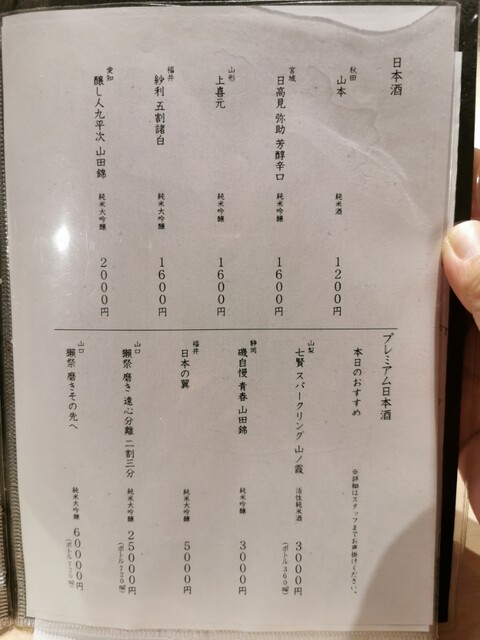 日本酒
秋田
山本 純米酒 1200円
宮城
日高見 弥助 芳醇辛口 純米吟醸 1600円
山形
上喜元 純米吟醸 1600円
福井
紗利 五割諸白 純米大吟醸 1600円
愛知
醸し人九平次 山田錦 純米大吟醸 2000円
プレミアム日本酒
本日のおすすめ ※詳細はスタッフまでお声掛けください。
山梨
七賢 スパークリング 山ノ霞 活性純米酒 3000円
(ボトル360㎖)
静岡
磯自慢 青春 山田錦 純米吟醸 3000円
福井
日本の翼 純米大吟醸 5000円
山口
獺祭 磨き 遠心分離 二割三分 純米大吟醸 25000円
(ボトル720㎖)
山口
獺祭 磨きその先へ 純米大吟醸 60000円
(ボトル720㎖)